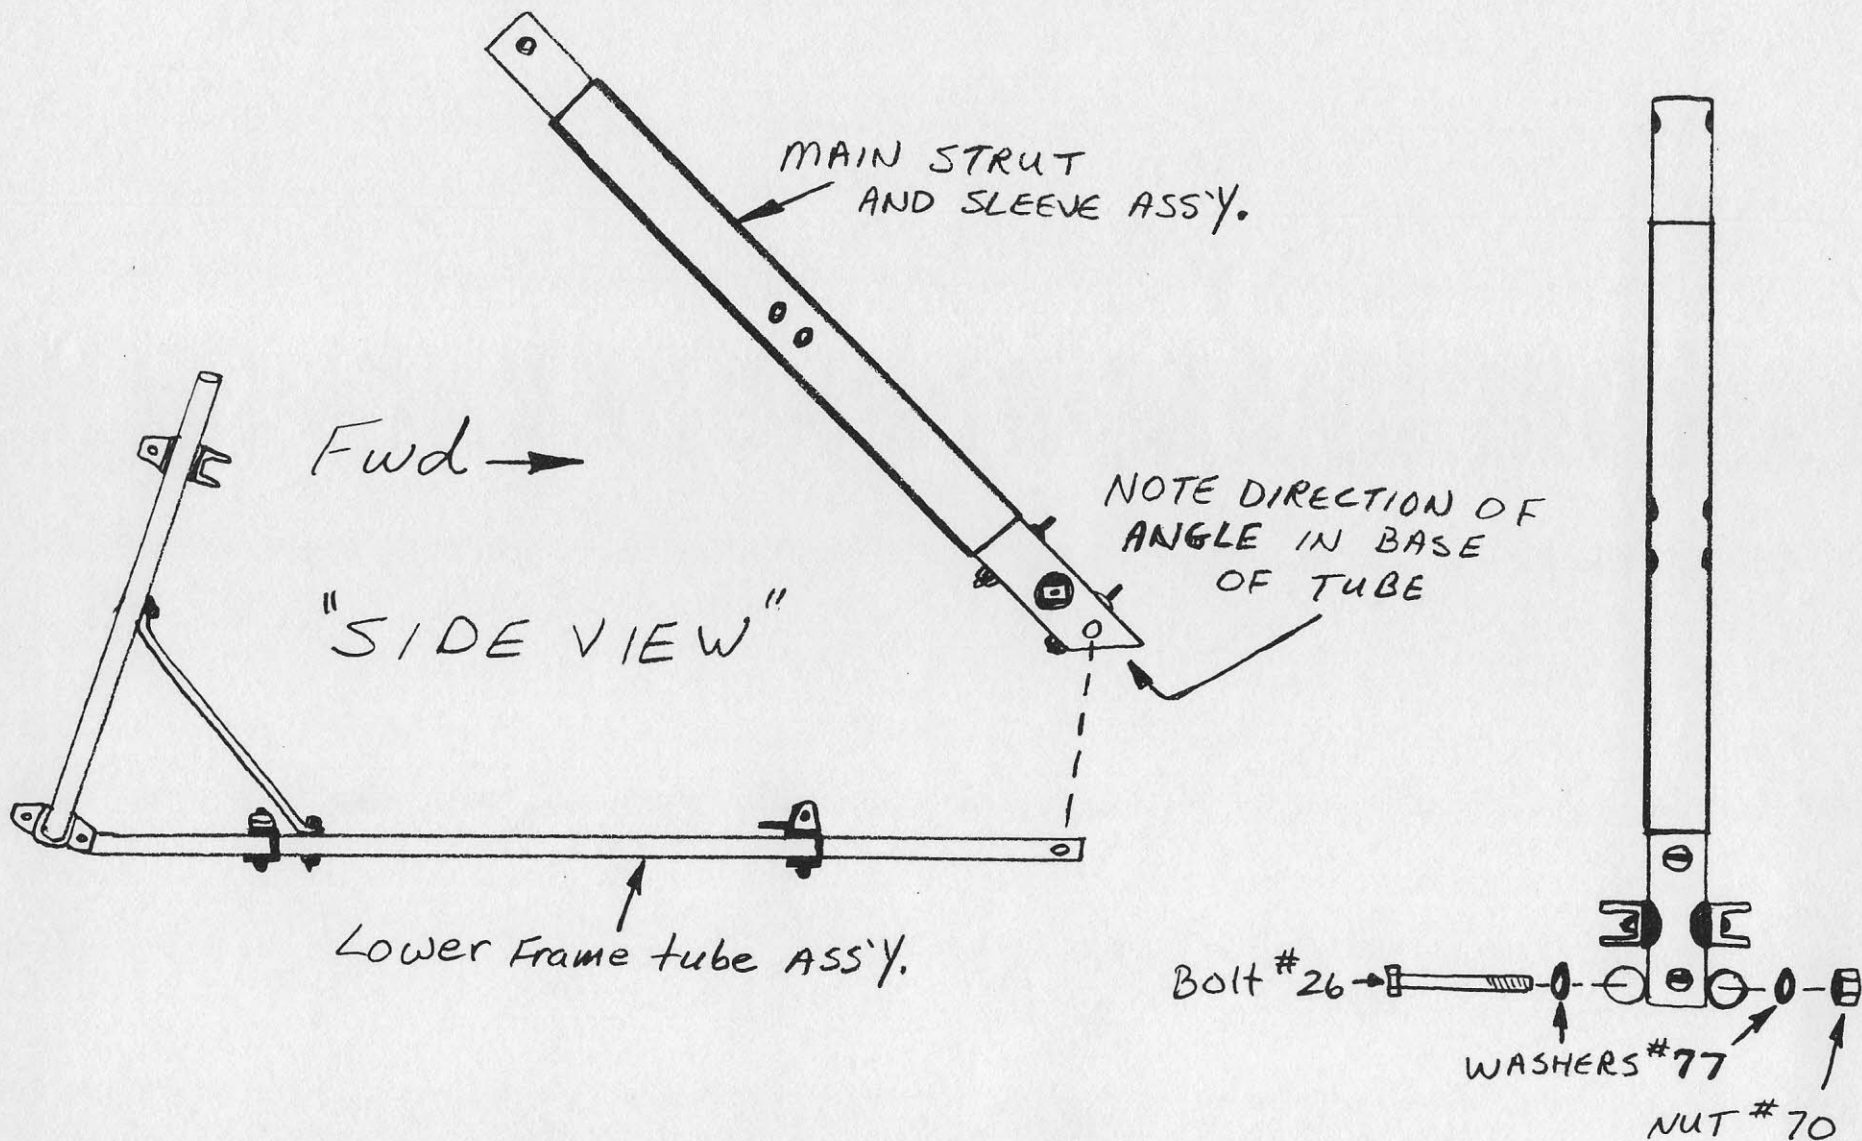 MAIN STRUT
AND SLEEVE ASS'Y.
Fwd
NOTE DIRECTION OF
ANGLE IN BASE
OF TUBE
"SIDE VIEW"
Lower Frame tube ASS'Y.
Bolt #26
WASHERS #77
NUT #70